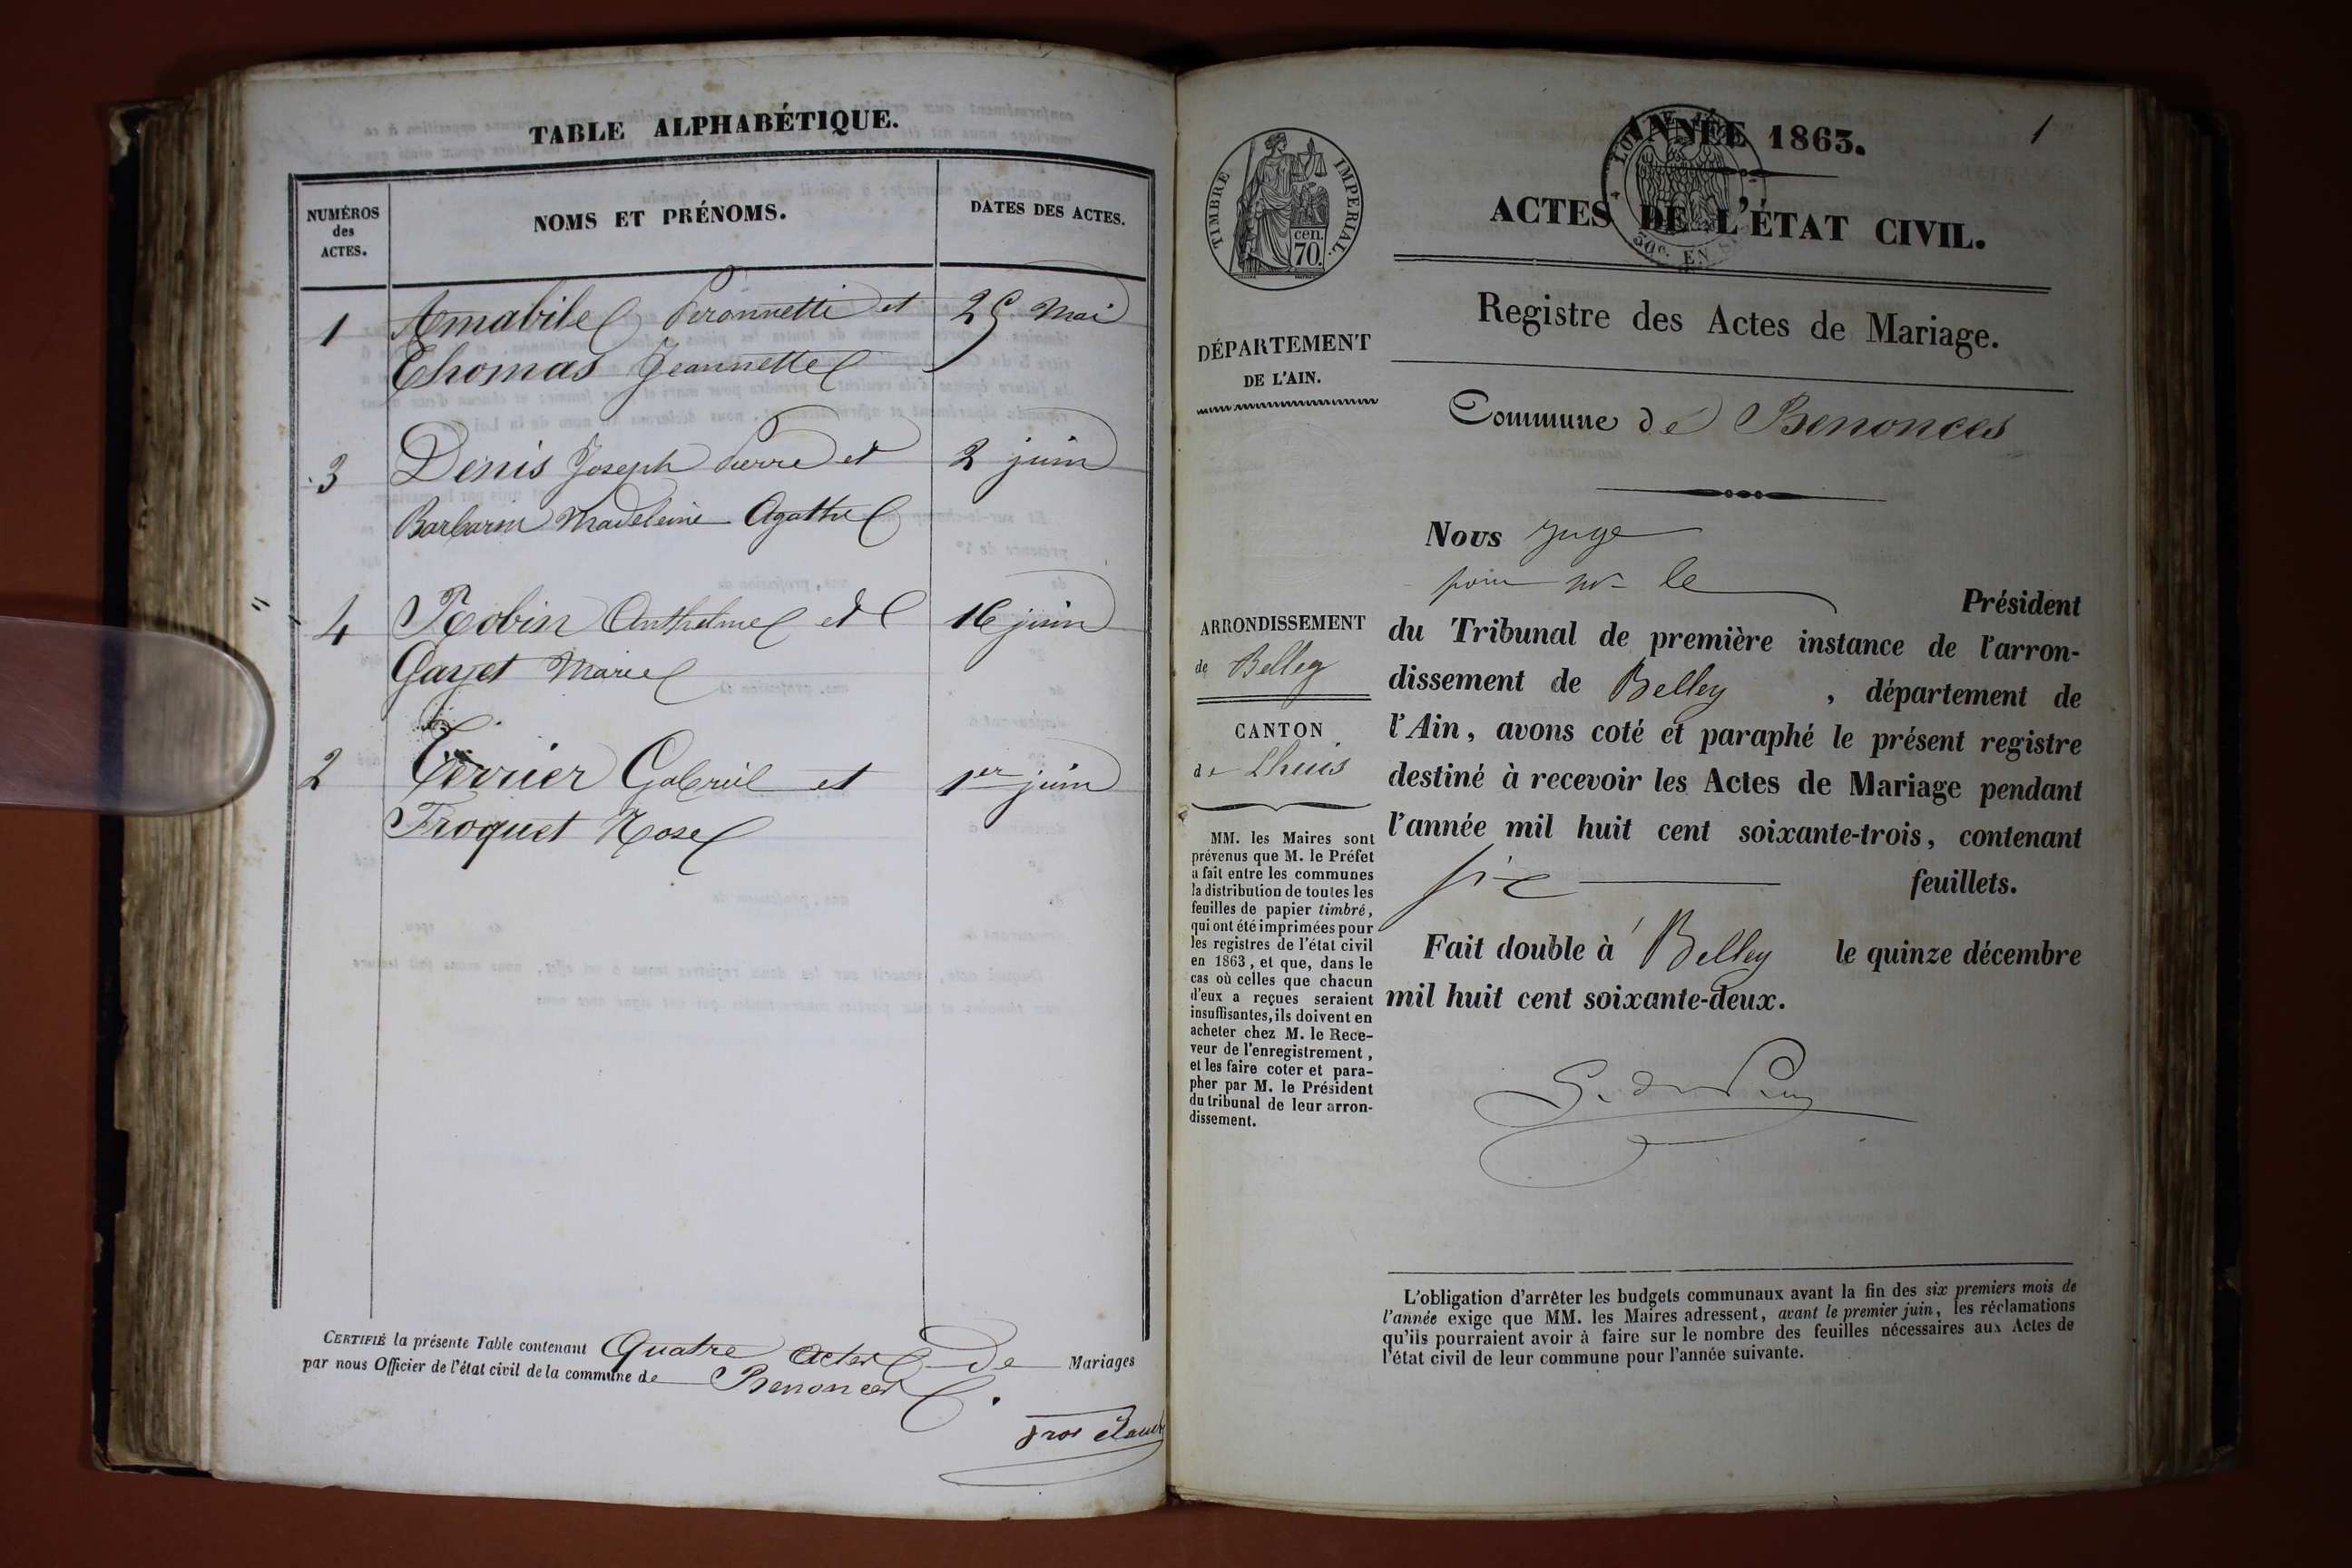 TABLE ALPHABÉTIQUE.
NUMÉROS
des
ACTES.
NOMS ET PRÉNOMS.
DATES DES ACTES.
1 Amabile Peronnette et 25 Mai
Thomas Jeannette
3 Denis Joseph Pierre et 2 juin
Barbarin Madeleine Agathe
4 Robin Anthelme et 16 juin
Gayet Marie
2 Tervier Gabriel et 1er juin
Froquet Rose
CERTIFIÉ la présente Table contenant Quatre actes de Mariages
par nous Officier de l'état civil de la commune de Benonces.
1
ANNÉE 1863.
ACTES DE L'ÉTAT CIVIL.
TIMBRE IMPERIAL.
cen.
70.
Registre des Actes de Mariage.
DÉPARTEMENT
DE L'AIN.
Commune de Benonces
Nous juge
pour mr le
Président
du Tribunal de première instance de l'arron-
dissement de Belley, département de
l'Ain, avons coté et paraphé le présent registre
destiné à recevoir les Actes de Mariage pendant
l'année mil huit cent soixante-trois, contenant
six feuillets.
Fait double à Belley le quinze décembre
mil huit cent soixante-deux.
ARRONDISSEMENT
de Belley
CANTON
de Lhuis
MM. les Maires sont
prévenus que M. le Préfet
a fait entre les communes
la distribution de toutes les
feuilles de papier timbré,
qui ont été imprimées pour
les registres de l'état civil
en 1863, et que, dans le
cas où celles que chacun
d'eux a reçues seraient
insuffisantes, ils doivent en
acheter chez M. le Rece-
veur de l'enregistrement,
et les faire coter et para-
pher par M. le Président
du tribunal de leur arron-
dissement.
L'obligation d'arrêter les budgets communaux avant la fin des six premiers mois de
l'année exige que MM. les Maires adressent, avant le premier juin, les réclamations
qu'ils pourraient avoir à faire sur le nombre des feuilles nécessaires aux Actes de
l'état civil de leur commune pour l'année suivante.